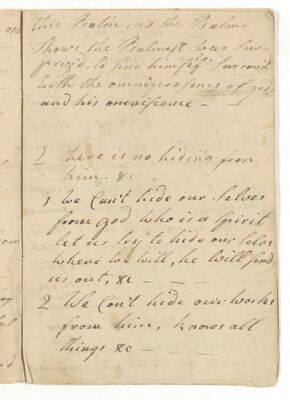 this Psalm, as the Psalms
Shows the Psalmest was Sur-
priz'd to find himself Surround
with the omnipresence of god
and his omnisience —
2 there is no hiding from
him. &c
1 we Can't hide our Selves
from god who is a Spirit
let us try to hide our Selves
where we will, he will find
us out, &c —
2 We Can't hide our works
from him, knows all
things &c —